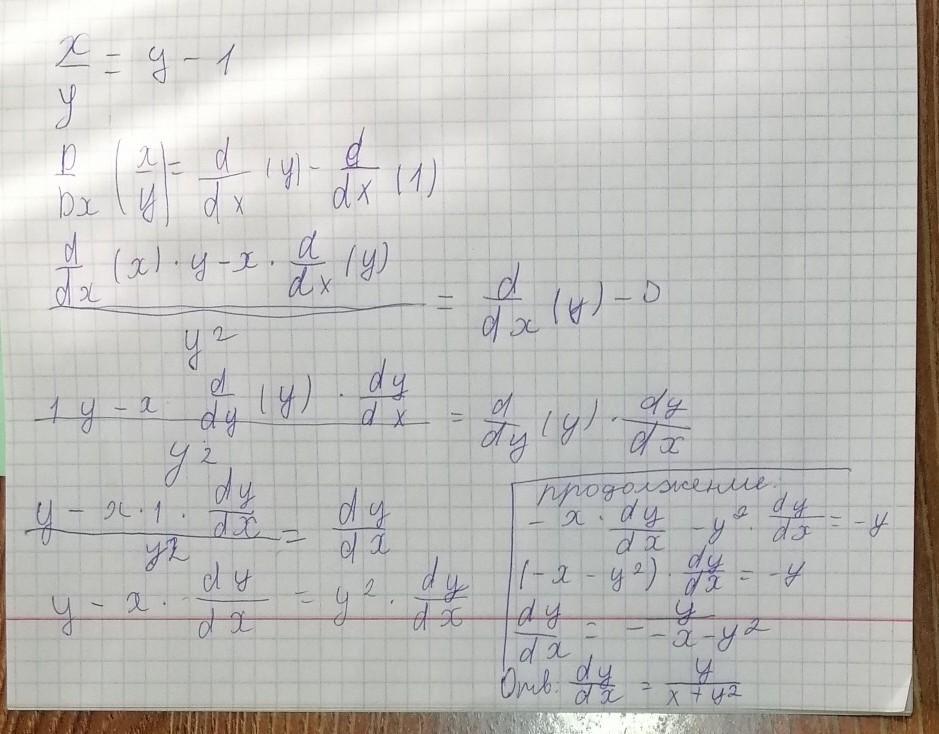 x/y = y - 1
D/Dx (x/y) = d/dx (y) - d/dx (1)
(d/dx (x) · y - x · d/dx (y)) / y² = d/dx (y) - 0
(1y - x d/dy (y) · dy/dx) / y² = d/dy (y) · dy/dx
(y - x · 1 · dy/dx) / y² = dy/dx
y - x · dy/dx = y² · dy/dx
продолжение.
- x · dy/dx - y² · dy/dx = -y
(-x - y²) · dy/dx = -y
dy/dx = - y/(-x - y²)
Отв. dy/dx = y/(x + y²)